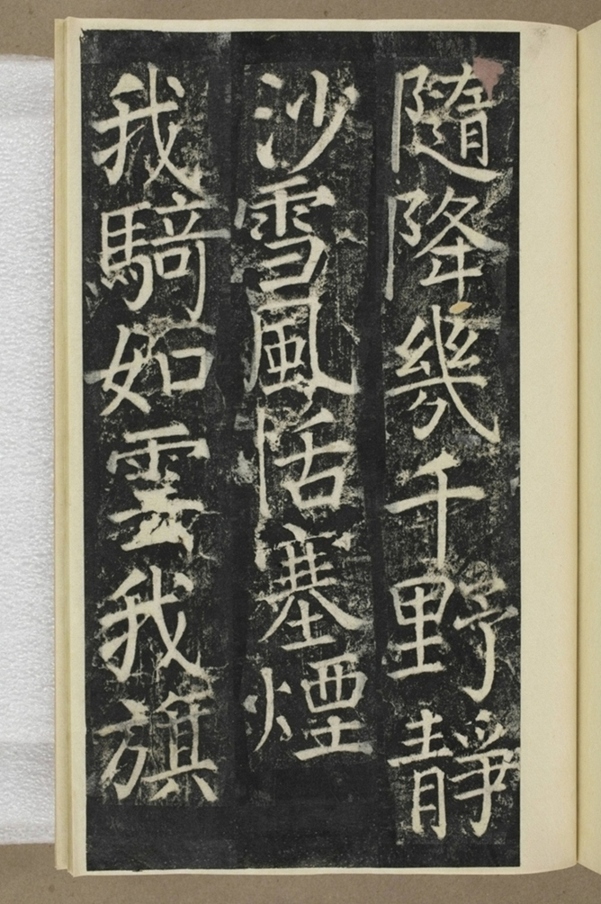 隨降幾千野靜
沙雪風恬塞煙
我騎如雲我旗